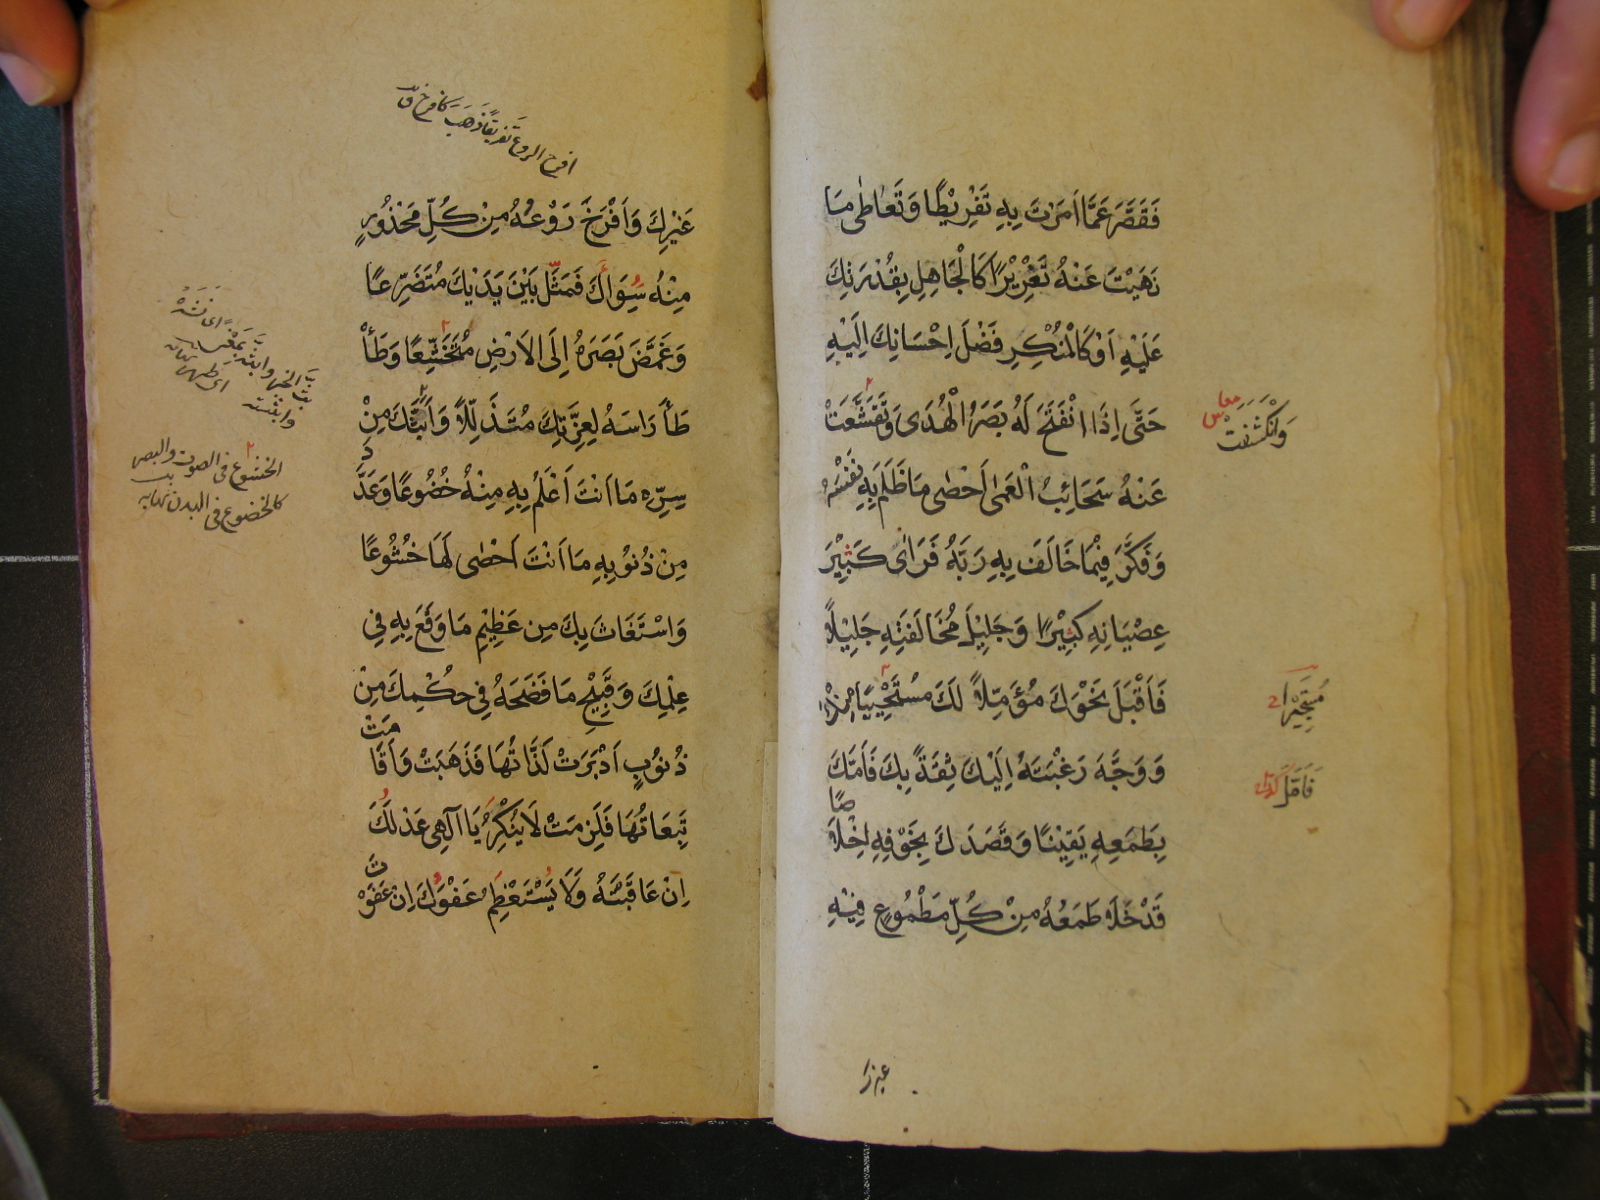 فَقَصَّرَ عَمَّا اَمَرْتَ بِهِ تَفْرِيْطًا وَتَعَاطٰى مَا
نَهَيْتَ عَنْهُ تَغْرِيْرًا كَالْجَاهِلِ بِقُدْرَتِكَ
عَلَيْهِ اَوْ كَالْمُنْكِرِ فَضْلَ اِحْسَانِكَ اِلَيْهِ
حَتّٰى اِذَا انْفَتَحَ لَهُ بَصَرُ الْهُدٰى وَتَقَشَّعَتْ
عَنْهُ سَحَائِبُ الْعَمٰى اَحْصٰى مَا ظَلَمَ بِهِ نَفْسَهُ
وَفَكَّرَ فِيْمَا خَالَفَ بِهِ رَبَّهُ فَرَاٰى كَبِيْرَ
عِصْيَانِهِ كَبِيْرًا وَجَلِيْلَ مُخَالَفَتِهِ جَلِيْلًا
فَاَقْبَلَ نَحْوَكَ مُؤَمِّلًا لَكَ مُسْتَحْيِيًا مِنْكَ
وَوَجَّهَ رَغْبَتَهُ اِلَيْكَ ثِقَةً بِكَ فَاَمَّكَ
بِطَمَعِهِ يَقِيْنًا وَقَصَدَكَ بِخَوْفِهِ اِخْلَاصًا
قَدْ خَلَا طَمَعُهُ مِنْ كُلِّ مَطْمُوْعٍ فِيْهِ
وَانْكَشَفَتْ
مُسْتَجِيْرًا
فَاَقْبَلَ
غيرك
افرخ الروع تفريقا ذهب كافرخ ق
غَيْرِكَ وَاَفْرَخَ رَوْعُهُ مِنْ كُلِّ مَحْذُوْرٍ
مِنْهُ سِوَاكَ فَمَثَلَ بَيْنَ يَدَيْكَ مُتَضَرِّعًا
وَغَمَّضَ بَصَرَهُ اِلَى الْاَرْضِ مُتَخَشِّعًا وَطَأْ
طَأَ رَاسَهُ لِعِزَّتِكَ مُتَذَلِّلًا وَاَبَثَّكَ مِنْ
سِرِّهِ مَا اَنْتَ اَعْلَمُ بِهِ مِنْهُ خُضُوْعًا وَعَدَّدَ
مِنْ ذُنُوْبِهِ مَا اَنْتَ اَحْصٰى لَهَا خُشُوْعًا
وَاسْتَغَاثَ بِكَ مِنْ عَظِيْمِ مَا وَقَعَ بِهِ فِي
عِلْمِكَ وَقَبِيْحِ مَا فَضَحَهُ فِي حُكْمِكَ مِنْ
ذُنُوْبٍ اَدْبَرَتْ لَذَّاتُهَا فَذَهَبَتْ وَاَقَامَتْ
تَبِعَاتُهَا فَلَزِمَتْ لَا يُنْكِرُ يَا اِلٰهِي عَدْلَكَ
اِنْ عَاقَبْتَهُ وَلَا يَسْتَعْظِمُ عَفْوَكَ اِنْ عَفَوْتَ
الخشوع في الصوت والبصر
كالخضوع في البدن نهايه